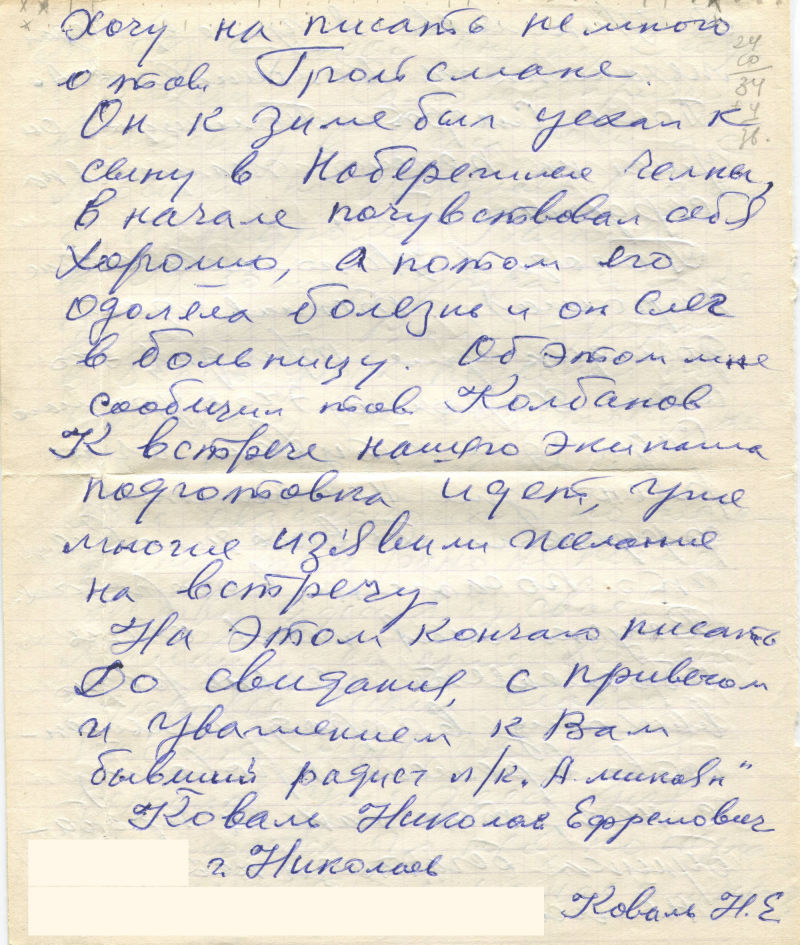 Хочу на писать немного
о тов. Гройсмане.
Он к зиме был уехал к
сыну в Набережние Челны,
в начале почувствовал себя
хорошо, а потом его
одолела болезнь и он слег
в больницу. Об этом мне
сообщил тов. Колбанов
К встрече нашего экипажа
подготовка идет, уже
многие из'явили желание
на встречу
На этом кончаю писать
До свидания, с приветом
и уважением к Вам
бывший радист л/к. А. микоян"
Коваль Николай Ефремович
г. Николаев
Коваль Н.Е
24
34